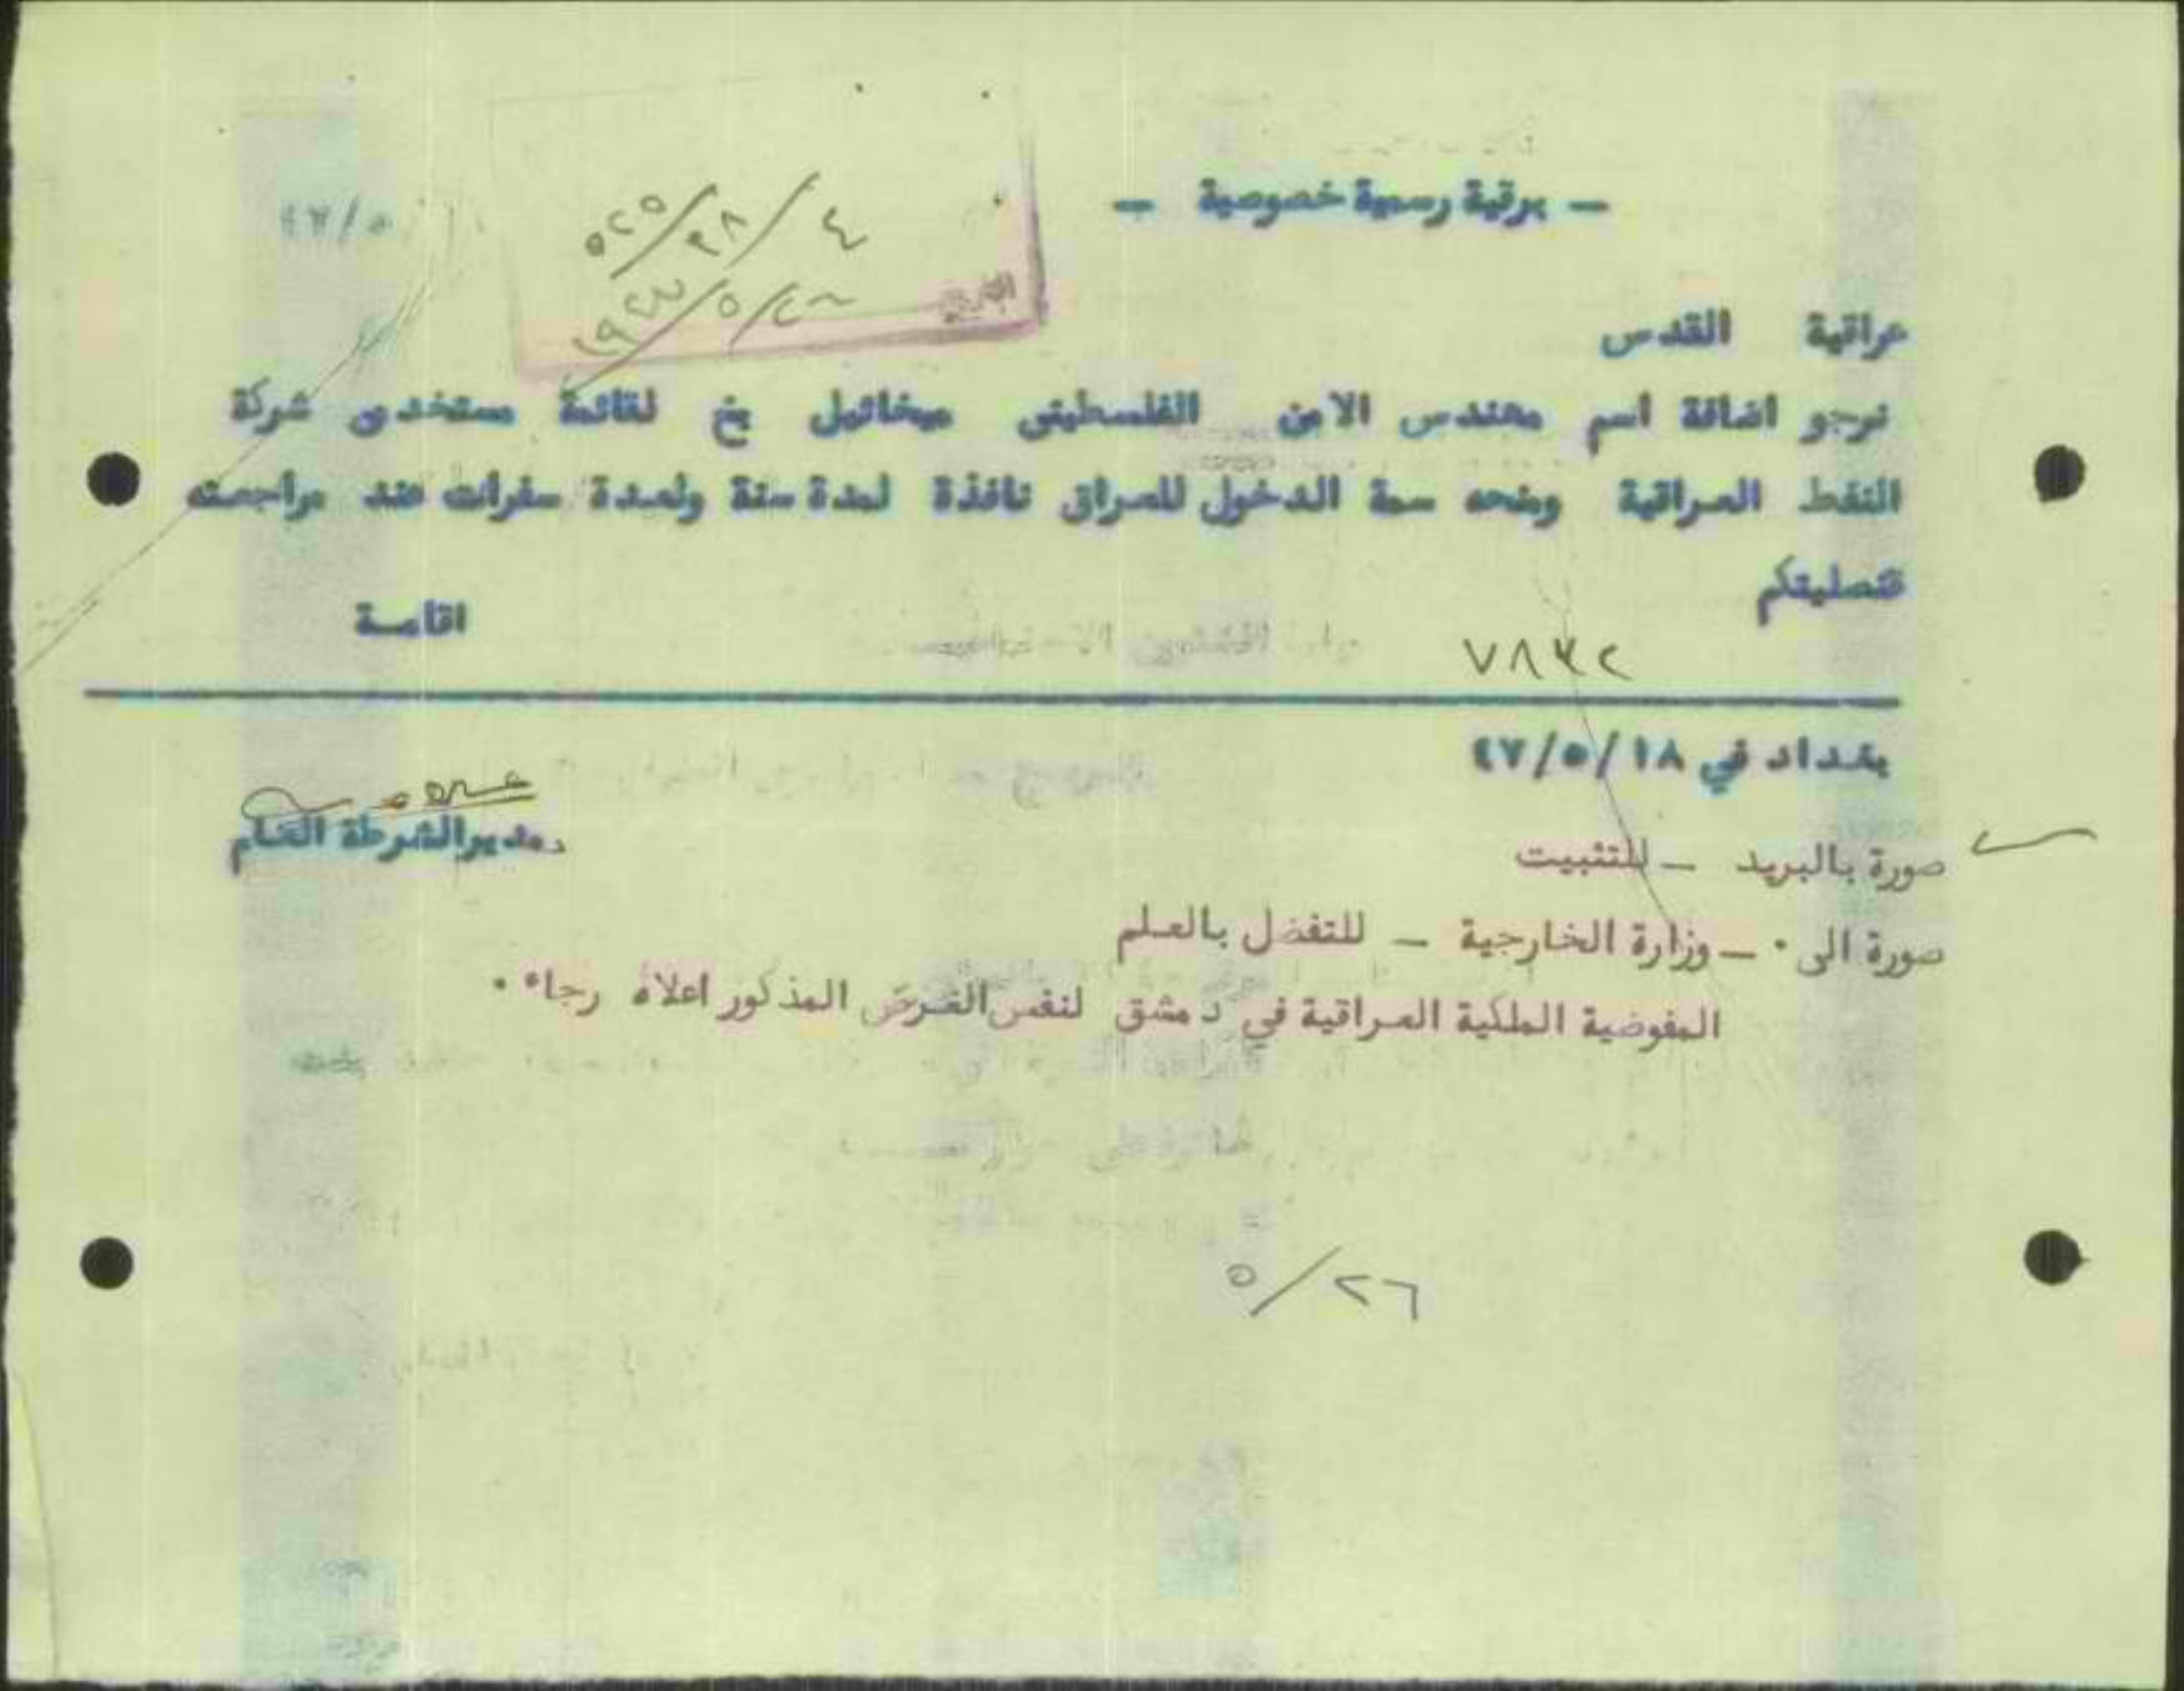 — برقية رسمية خصوصية —
٥٢٥/٣٨/٤
التاريخ ١٩٤٧/٥/٢٦
عراقية القدس
نرجو اضافة اسم مهندس الامن الفلسطيني ميخائيل بخ لقائمة مستخدمي شركة
النفط العراقية ومنحه سمة الدخول للعراق نافذة لمدة سنة ولعدة سفرات عند مراجعته
قنصليتكم
اقامة
٧٨٣٢
بغداد في ٤٧/٥/١٨
مدير الشرطة العام
صورة بالبريد — للتثبيت
صورة الى ٠ — وزارة الخارجية — للتفضل بالعلم
المفوضية الملكية العراقية في دمشق لنفس الغرض المذكور اعلاه رجاء ٠
٥/٢٦